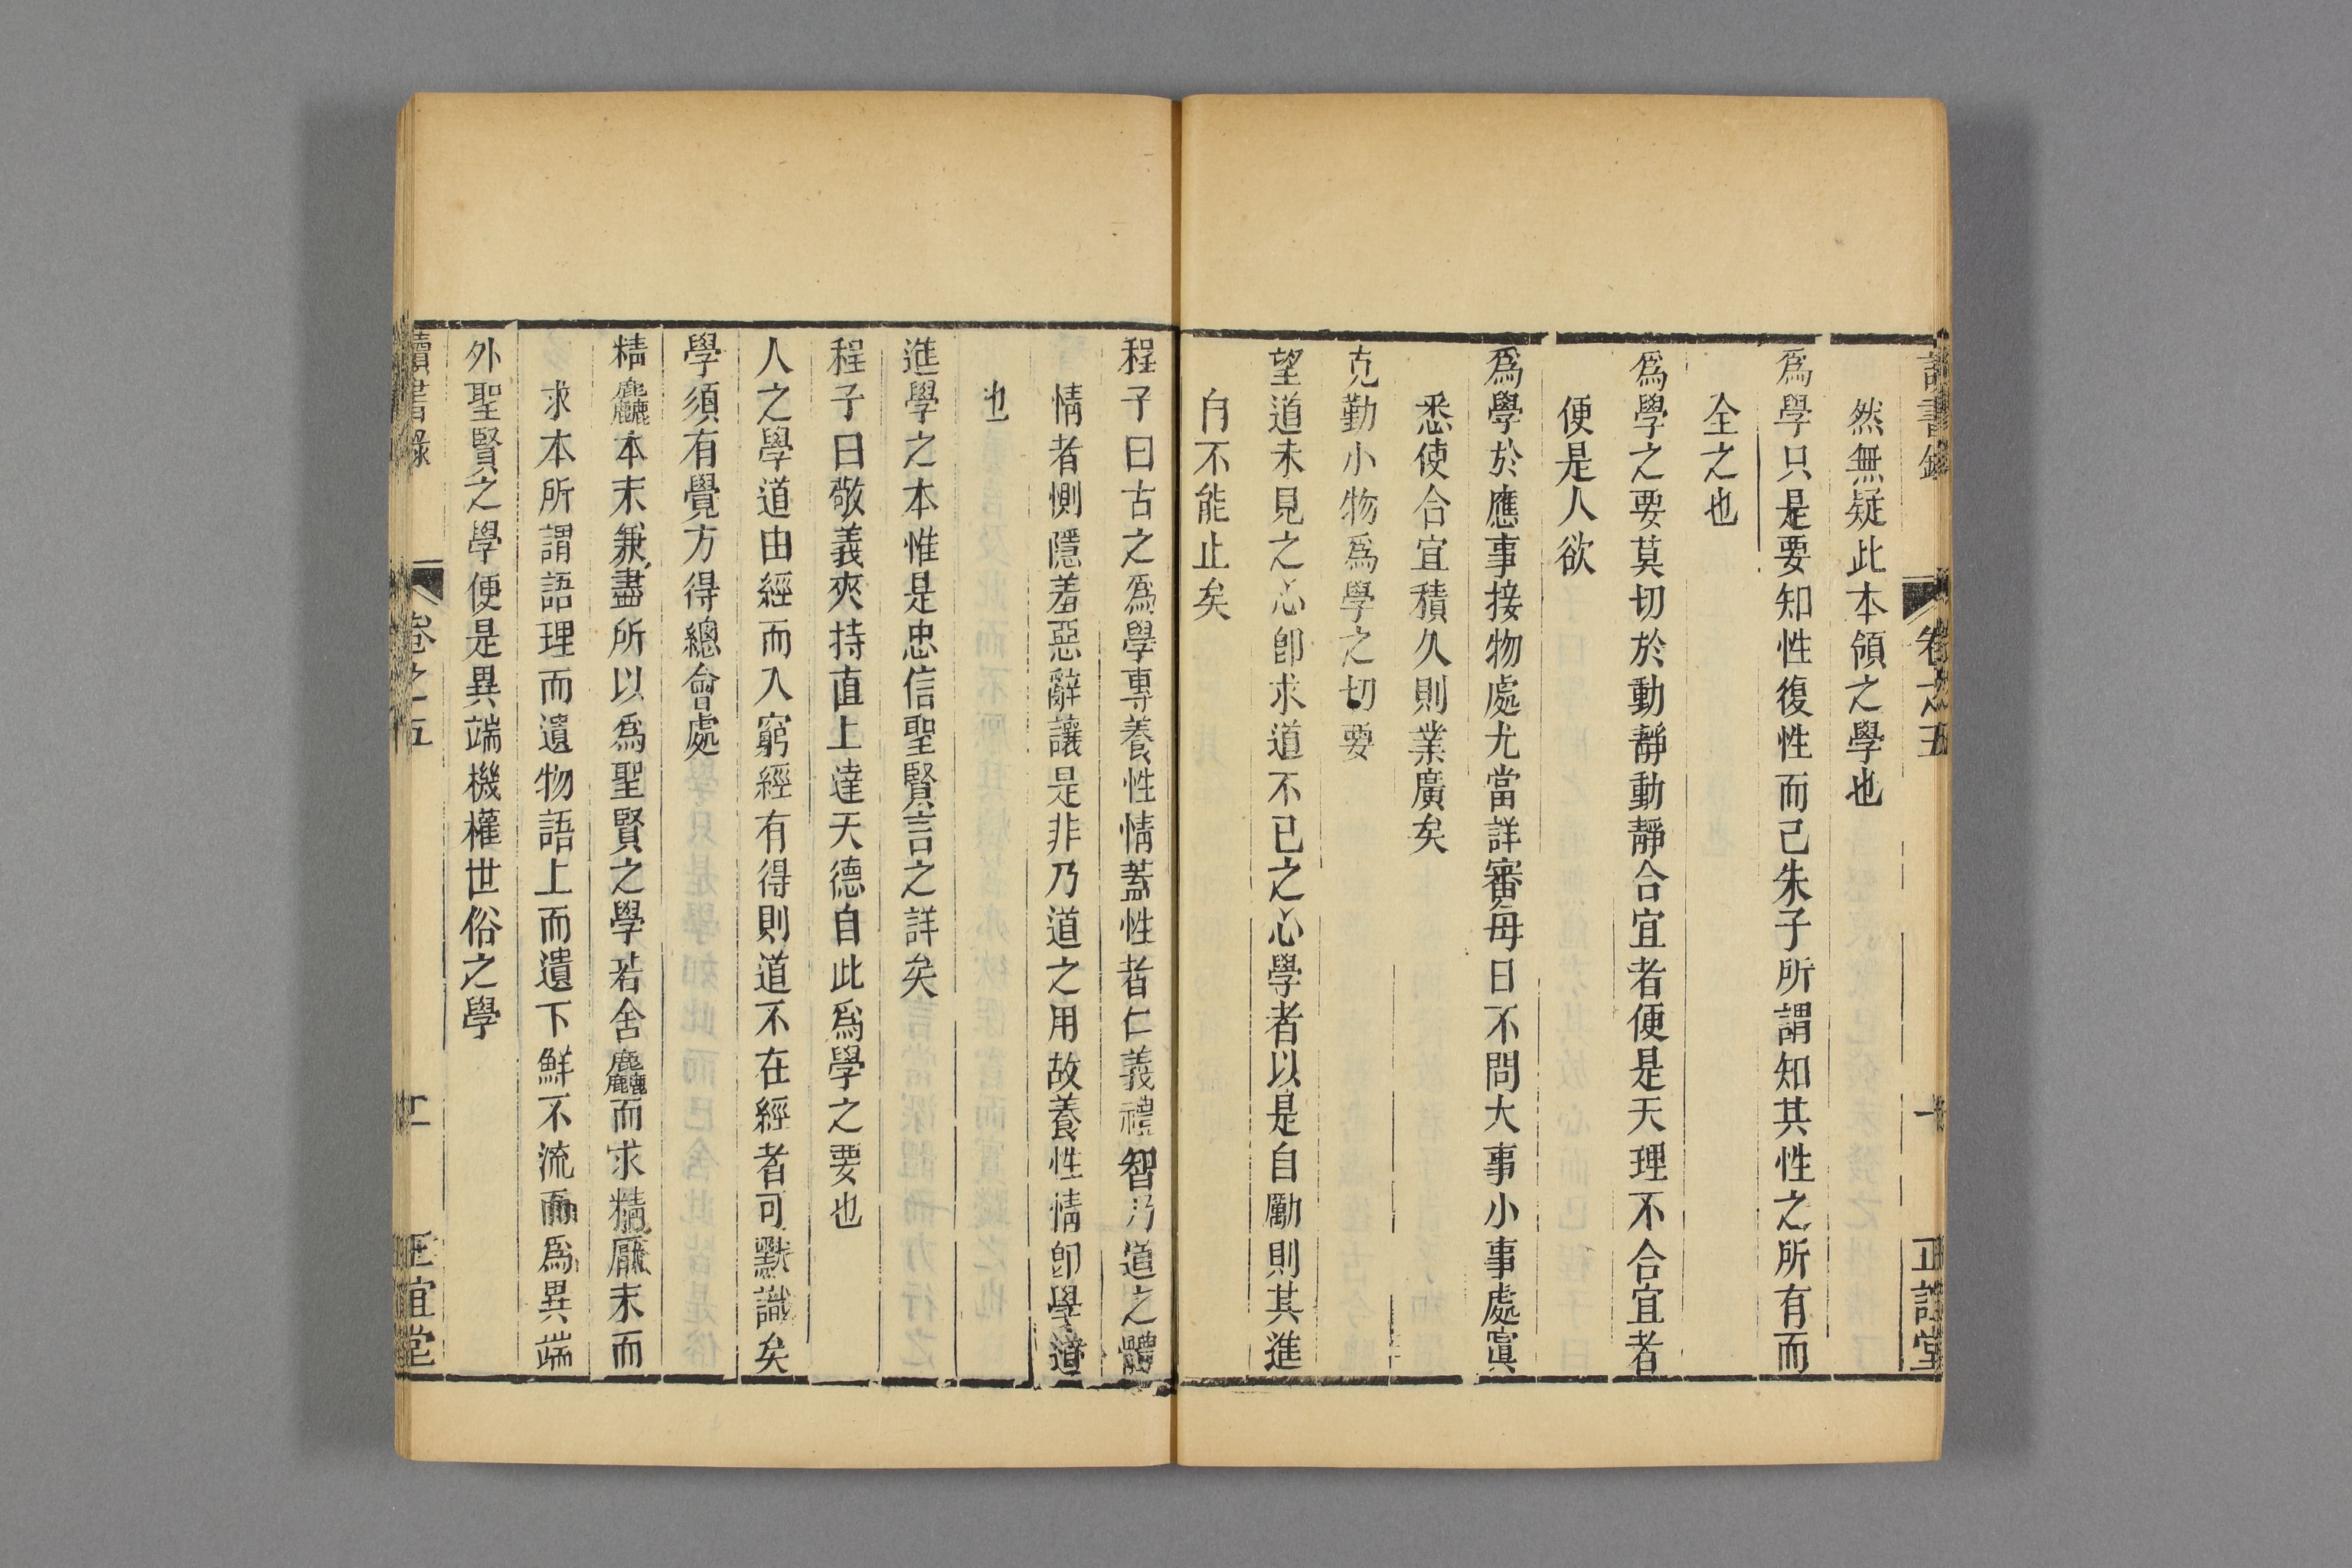 讀書錄 卷之五 十 正誼堂
然無疑此本領之學也
爲學只是要知性復性而已朱子所謂知其性之所有而
全之也
爲學之要莫切於動靜動靜合宜者便是天理不合宜者
便是人欲
爲學於應事接物處尤當詳審每日不問大事小事處寘
悉使合宜積久則業廣矣
克勤小物爲學之切要
望道未見之心卽求道不已之心學者以是自勵則其進
自不能止矣
程子曰古之爲學專養性情蓋性者仁義禮智乃道之體
情者惻隱羞惡辭讓是非乃道之用故養性情卽學道
也
進學之本惟是忠信聖賢言之詳矣
程子曰敬義夾持直上達天德自此爲學之要也
人之學道由經而入窮經有得則道不在經者可默識矣
學須有覺方得總會處
精麤本末兼盡所以爲聖賢之學若舍麤而求精厭末而
求本所謂語理而遺物語上而遺下鮮不流而爲異端
外聖賢之學便是異端機權世俗之學
讀書錄 卷之五 十一 正誼堂